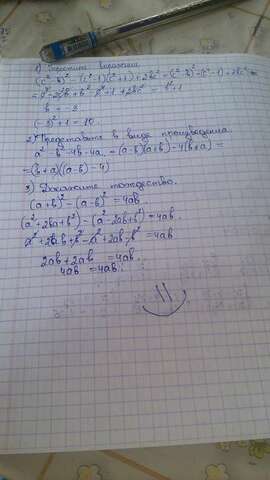 1) Упростите выражение.
(c²-b)² - (c²-1)(c²+1) + 2bc² = (c²-b)² - (c⁴-1) + 2bc² =
= c⁴ - 2c²b + b² - c⁴ + 1 + 2bc² = b² + 1
b = -3
(-3)² + 1 = 10.
2) Представьте в виде произведения
a² - b² - 4b - 4a = (a-b)(a+b) - 4(b+a) =
= (b+a)((a-b) - 4)
3) Докажите тождество.
(a+b)² - (a-b)² = 4ab.
(a²+2ba+b²) - (a²-2ab+b²) = 4ab.
a² + 2ab + b² - a² + 2ab - b² = 4ab
2ab + 2ab = 4ab.
4ab = 4ab.